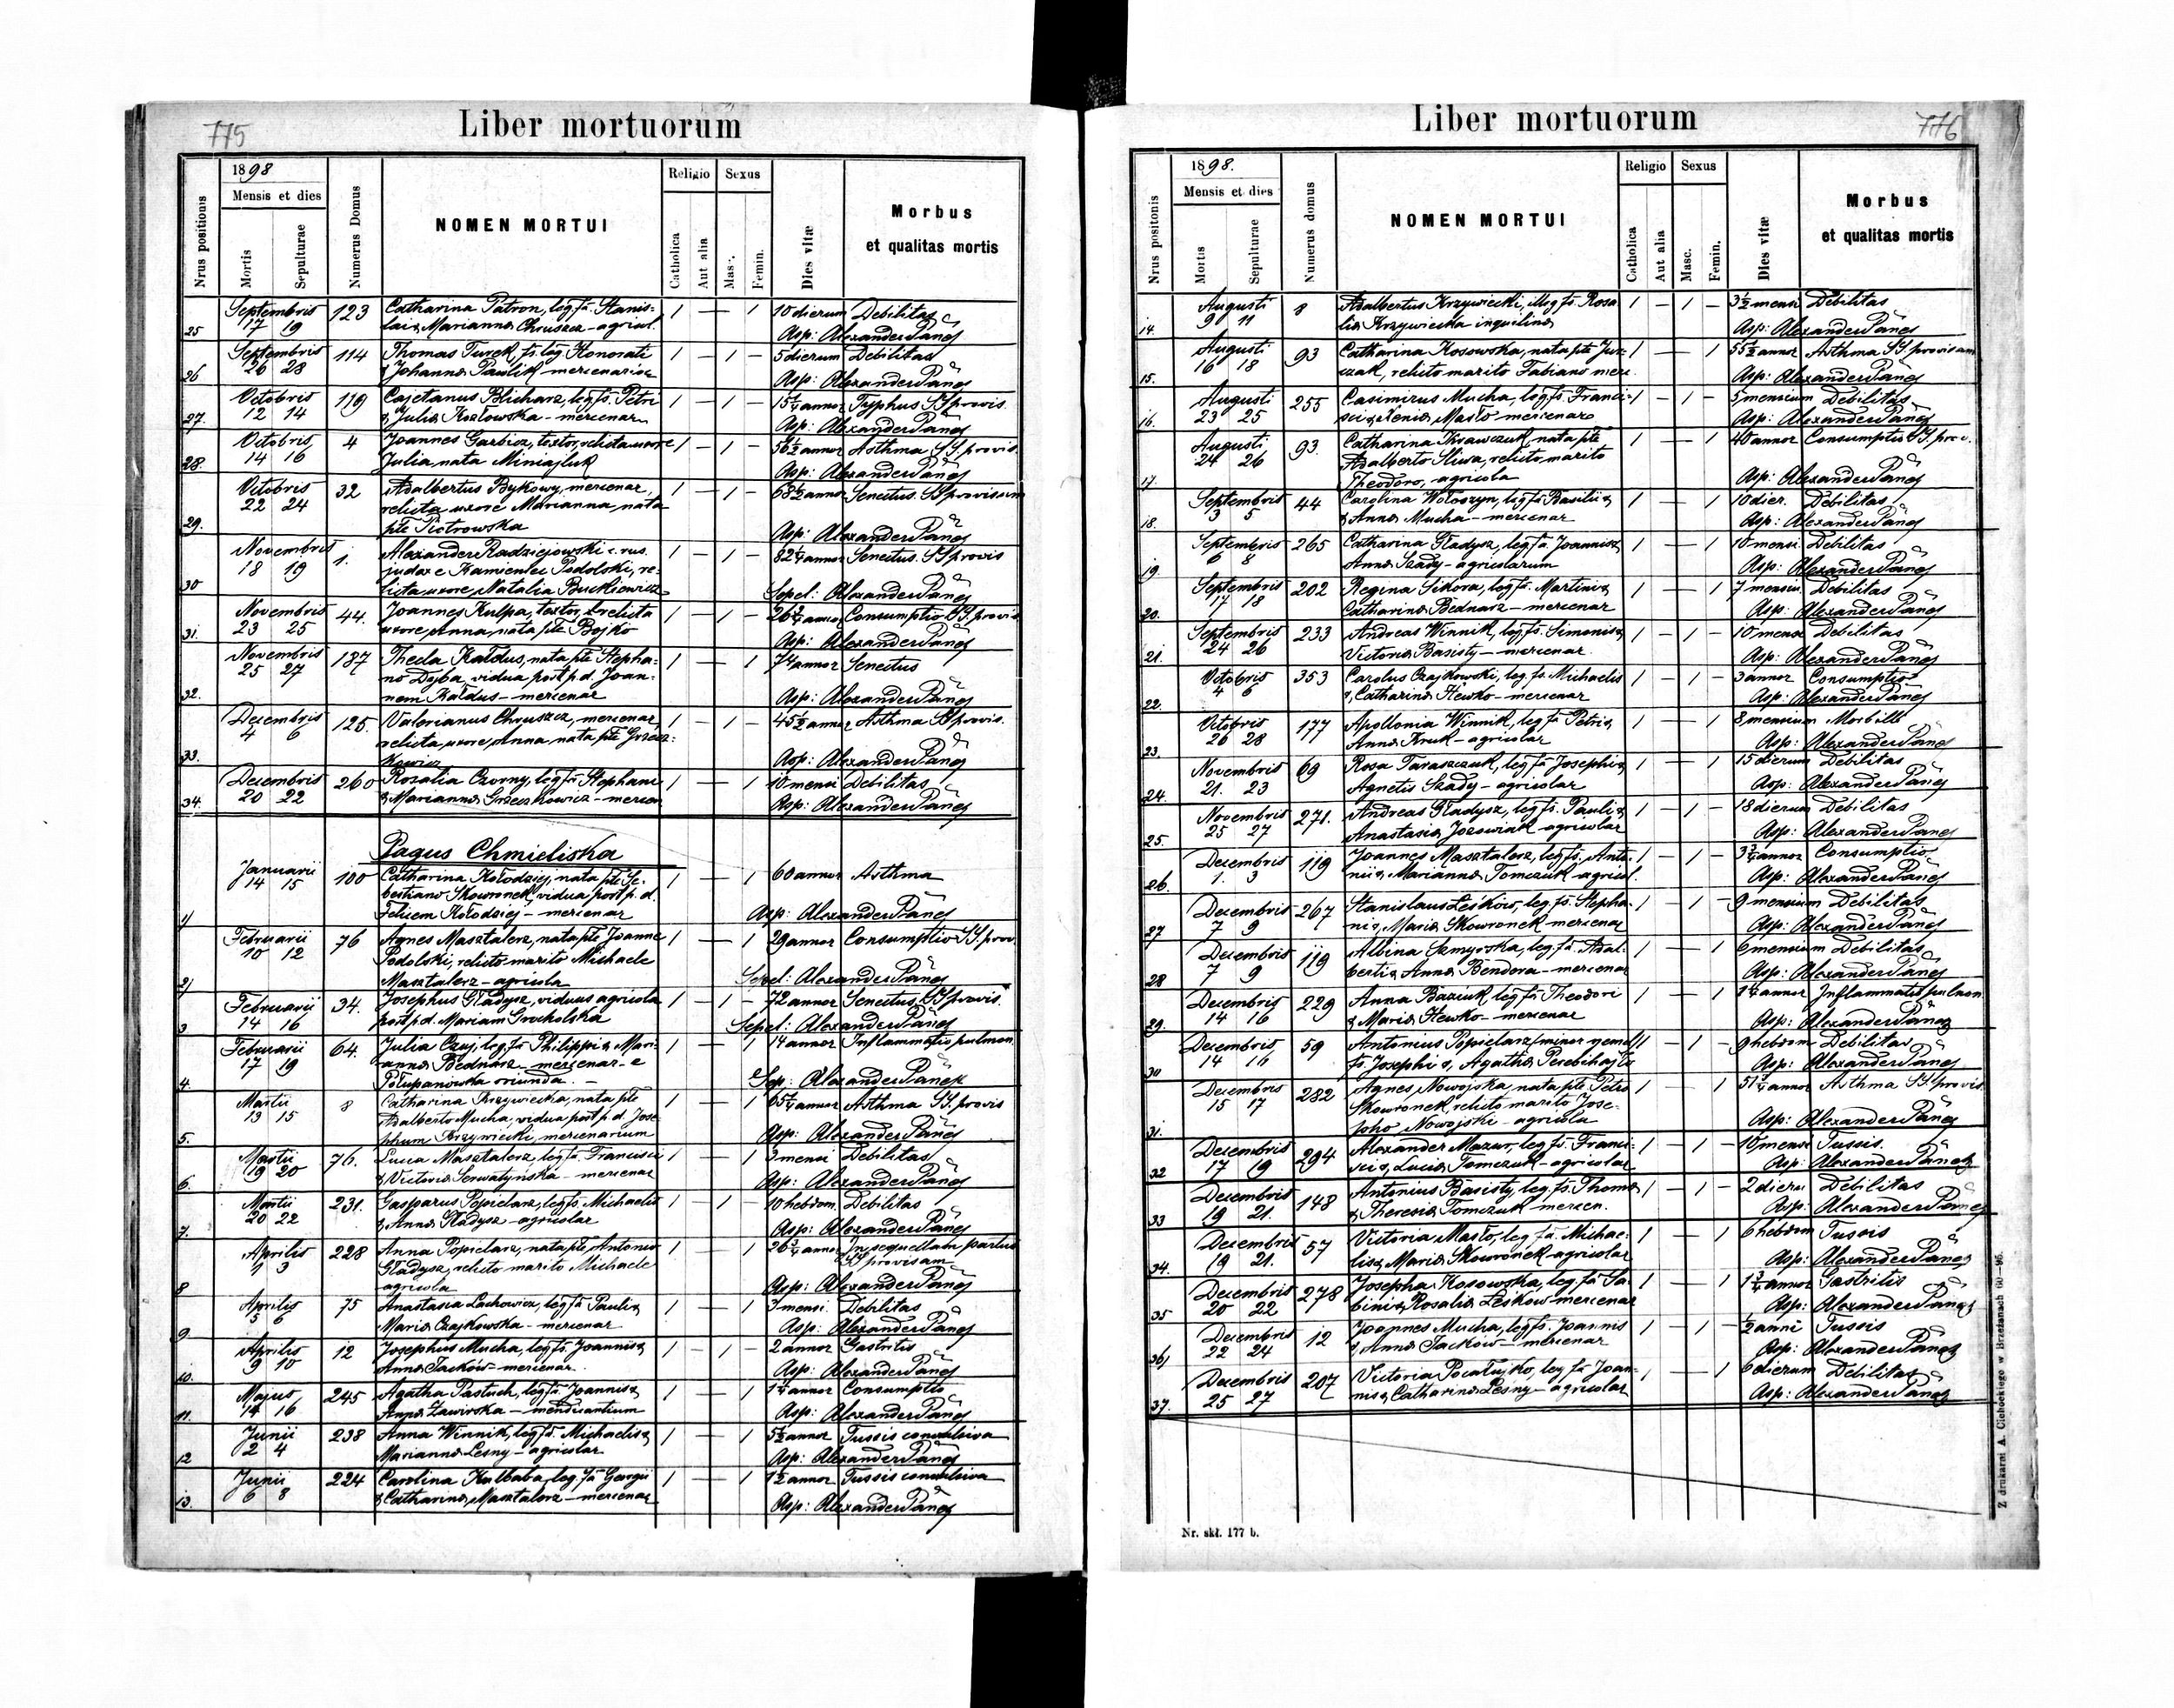 775
Liber mortuorum
Nrus positionis
1898
Mensis et dies
Mortis
Sepulturae
Numerus Domus
NOMEN MORTUI
Religio
Catholica
Aut alia
Sexus
Masc.
Femin.
Dies vitæ
Morbus
et qualitas mortis
25 Septembris 17 19 123 Catharina Patron, leg. fa. Stanis-
lai & Marianna Chruszcz - agricol. 1 — 1 10 dierum Debilitas
Asp: Alexander Pánes
26 Septembris 26 28 114 Thomas Turek, fs. leg. Honorati
& Johanna Pawlik mercenariae 1 — 1 — 5 dierum Debilitas
Asp: Alexander Pánes
27. Octobris 12 14 119 Cajetanus Blicharz, leg. fs. Petri
& Julia Kozłowska - mercenar 1 — 1 — 15 1/4 annor Typhus SS provis.
Asp: Alexander Pánes
28. Octobris 14 16 4 Joannes Garbicz, textor, relicta uxore
Julia nata Miniajluk 1 — 1 — 56 1/2 annor Asthma SS. provis.
Asp: Alexander Pánes
29. Octobris 22 24 32 Adalbertus Bykowy, mercenar,
relicta uxore Marianna, nata
pte Piotrowska 1 — 1 — 63 1/2 annor Senectus. SS provisum
Asp: Alexander Pánes
30 Novembris 18 19 1. Alexander Radziejowski c. rus.
judex e Kamieniec Podolski, re-
licta uxore Natalia Buckiewicz 1 — 1 — 82 1/4 annor Senectus. SS provis
Sepel: Alexander Pánes
31. Novembris 23 25 44. Joannes Kulpa, textor, relicta
uxore Anna, nata pte Bojko 1 — 1 — 26 annor Consumptio SS. provis
Asp: Alexander Pánes
32. Novembris 25 27 187 Thecla Kałdus, nata pte Stepha-
no Dyba, vidua post p. d. Joan-
nem Kałdus - mercenar 1 — 1 74 annor Senectus
Asp: Alexander Pánes
33. Decembris 4 6 125. Valerianus Chruszcz, mercenar,
relicta uxore, Anna, nata pte Grzesz-
kowicz 1 — 1 — 45 1/2 annor Asthma SS provis.
Asp: Alexander Pánes
34. Decembris 20 22 260 Rosalia Czorny, leg fa. Stephani
& Marianna Grzeszkowicz - mercen 1 — 1 10 mensi Debilitas
Asp: Alexander Pánes
Pagus Chmieliska
1/ Januarii 14 15 100 Catharina Kołodziej, nata pte Se-
bestiano Skowronek, vidua post p. d.
Felicem Kołodziej - mercenar 1 — 1 60 annor Asthma
Asp: Alexander Pánes
2/ Februarii 10 12 76 Agnes Masztalerz, nata pte Joanne
Podolski, relicto marito Michaele
Masztalerz - agricola 1 — 1 29 annor Consumptio SS. prov.
Sepel: Alexander Pánes
3 Februarii 14 16 34. Josephus Gładysz, viduus agricola
post p.d. Mariam Grocholska 1 — 1 — 72 annor Senectus, SS provis.
Sepel: Alexander Pánes
4. Februarii 17 19 64. Julia Czuj, leg. fa Philippi & Mari-
anna Bednarz - mercenar - e
Połupanówka oriunda. - 1 — 1 14 annor Inflammatio pulmon.
Sep: Alexander Pánek
5. Martii 13 15 8 Catharina Krzywiecka, nata pte
Adalberto Mucha, vidua post p. d. Jose-
phum Krzywiecki, mercenarium 1 — 1 65 1/4 annor Asthma SS. provis
Asp: Alexander Pánes
6. Martii 19 20 76. Lucia Masztalerz, leg fa Francisci
& Victoria Serwatyńska - mercenar 1 — 1 3 mensi Debilitas
Asp: Alexander Pánes
7. Martii 20 22 231. Gasparus Popielarz, leg fs. Michaelis
& Anna Gładysz - agricolar 1 — 1 — 10 hebdom. Debilitas
Asp: Alexander Pánes
8 Aprilis 1 3 228 Anna Popielarz, nata pte, Antonio
Gładysz, relicto marito Michaele
agricola 1 — 1 26 3/4 annor In sequellam partus
SS provisam
Asp: Alexander Pánes
9. Aprilis 5 6 75 Anastasia Lachowicz, leg fa Pauli &
Maria Czajkowska - mercenar 1 — 1 3 mensi. Debilitas
Asp: Alexander Pánes
10. Aprilis 9 10 12 Josephus Mucha, leg fs. Joannis &
Anna Jacków - mercenar. 1 — 1 2 annor Gastritis
Asp: Alexander Pánes
11. Majus 14 16 245 Agatha Pastuch, leg fa. Joannis &
Anna Zawirska - mendicantium 1 — 1 1 1/4 annor Consumptio
Asp: Alexander Pánes
12 Junii 2 4 238 Anna Winnik, leg fa. Michaelis &
Marianna Lesny - agricolar 1 — 1 5 1/2 annor Tussis convulsiva
Asp: Alexander Pánes
13. Junii 6 8 224 Carolina Kulbaba, leg. fa Georgii
& Catharina Masztalerz - mercenar 1 — 1 1 1/2 annor Tussis convulsiva
Asp: Alexander Pánes
776
Liber mortuorum
Nrus positonis
1898.
Mensis et dies
Mortus
Sepulturae
Numerus domus
NOMEN MORTUI
Religio
Catholica
Aut alia
Sexus
Masc.
Femin.
Dies vitæ
Morbus
et qualitas mortis
14. Augusti 9 11 8 Adalbertus Krzywiecki, illeg fs. Rosa
lia Krzywiecka inquilina 1 — 1 — 3 1/2 mensi Debilitas
Asp: Alexander Pánes
15. Augusti 16 18 93 Catharina Kosowska, nata pte Jur-
czak, relicto marito Fabiano merc. 1 — 1 55 1/2 annor Asthma SS. provisam
Asp: Alexander Pánes
16. Augusti 23 25 255 Casimirus Mucha, leg. fs. Franci-
sci & Xenia Masło mercenar 1 — 1 — 5 mensium Debilitas
Asp: Alexander Pánes
17. Augusti 24 26 93. Catharina Krawczuk, nata pte
Adalberto Sliwa, relicto marito
Theodoro, agricola 1 — 1 40 annor Consumptio SS. prov.
Asp: Alexander Pánes
18. Septembris 3 5 44 Carolina Wołoszyn, leg fa Basilii &
& Anna Mucha - mercenar 1 — 1 10 dier. Debilitas
Asp: Alexander Pánes
19. Septembris 6 8 265 Catharina Gładysz, leg. fa. Joannis &
Anna Szady - agricolarum 1 — 1 10 mensi. Debilitas
Asp: Alexander Pánes
20. Septembris 17 18 202 Regina Sikora, leg fa. Martini &
Catharina Bednarz - mercenar 1 — 1 7 mensiu. Debilitas
Asp: Alexander Pánes
21. Septembris 24 26 233 Andreas Winnik, leg. fs. Simonis &
Victoria Basisty - mercenar. 1 — 1 — 10 mensi Debilitas
Asp: Alexander Pánes
22. Octobris 4 6 353 Carolus Czajkowski, leg. fs. Michaelis
& Catharina Hewko - mercenar 1 — 1 — 3 annor Consumptio
Asp: Alexander Pánes
23. Octobris 26 28 177 Apollonia Winnik, leg fa Petri &
Anna Kruk - agricolar 1 — 1 8 mensium Morbilli
Asp: Alexander Pánes
24. Novembris 21. 23 69 Rosa Taraszczuk, leg fa Josephi &
Agnetis Szady - agricolar 1 — 1 15 dierum Debilitas
Asp: Alexander Pánes
25. Novembris 25 27 271. Andreas Gładysz, leg fs. Pauli &
Anastasia Jozwiak agricolar 1 — 1 — 18 dierum Debilitas
Asp: Alexander Pánes
26. Decembris 1. 3 119 Joannes Masztalerz, leg fs. Anto-
nii & Marianna Tomczuk agricol. 1 — 1 — 3 annor Consumptio
Asp: Alexander Pánes
27 Decembris 7 9 267 Stanislaus Leśków, leg. fs. Stepha-
ni & Maria Skowronek mercenar 1 — 1 — 9 mensium Debilitas
Asp: Alexander Pánes
28 Decembris 7 9 119 Albina leg. fa. Adal-
berti & Anna Bendera - mercenar 1 — 1 6 mensium Debilitas
Asp: Alexander Pánes
29. Decembris 14 16 229 Anna Baziuk leg fa Theodori
& Maria Hewko - mercenar 1 — 1 1 1/4 annor Inflammatio pulmon.
Asp: Alexander Pánes
30 Decembris 14 16 59 Antonius Popielarz (minor gemel)
fs. Josephi & Agatha 1 — 1 — 9 hebdom Debilitas
Asp: Alexander Pánes
31. Decembris 15 17 282 Agnes Nowojska, nata pte Petro
Skowronek, relicto marito Jose-
pho Nowojski - agricola 1 — 1 51 1/4 annor Asthma SS. provis
Asp: Alexander Pánes
32 Decembris 17 19 294 Alexander Mazur, leg fs. Franci-
sci & Lucia Tomczuk - agricolar 1 — 1 — 10 mensi Tussis.
Asp: Alexander Pánes
33 Decembris 19 21. 148 Antonius Basisty, leg. fs. Thoma
& Theresia Tomczuk mercen. 1 — 1 — 2 dieru Debilitas
Asp: Alexander Pánes
34. Decembris 19 21. 57 Victoria Masło, leg. fa. Michae-
lis & Maria Skowronek agricolar 1 — 1 6 hebdom Tussis
Asp: Alexander Pánes
35 Decembris 20 22 278 Josepha Kosowska, leg. fa Sa-
bini & Rosalia Leśkow mercenar 1 — 1 1 3/4 annor Gastritis
Asp: Alexander Pánes
36/ Decembris 22 24 12 Joannes Mucha, leg fs. Joannis
& Anna Jacków - mercenar 1 — 1 — 1/2 anni Tussis
Asp: Alexander Pánes
37. Decembris 25 27 207 Victoria Pocałujko, leg fa Joan-
nis & Catharina Lesny - agricolar 1 — 1 6 dierum Debilitas
Asp: Alexander Pánes
Nr. skł. 177 b.
Z drukarni A. Cichockiego w Brzeżanach